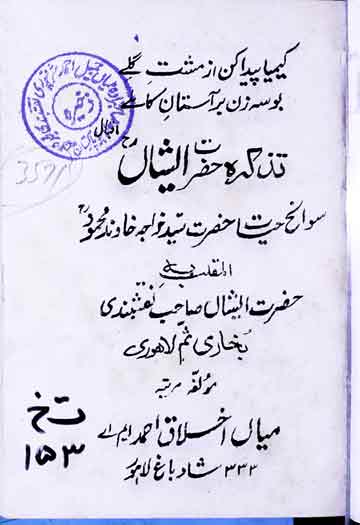 کیمیا پیدا کن از مشت گلے
بوسہ زن بر آستان کاملے
اقبال
تذکرہ حضرت ایشاںؒ
سوانح حیات حضرت سید خواجہ خاوند محمودؒ
المقلب بہ
حضرت ایشاں صاحب نقشبندی
بخاری ثم لاہوری
مؤلفہ مرتبہ
میاں اخلاق احمد ایم اے
۳۳۳ شاد باغ لاہور
تخ
۱۵۳
3571